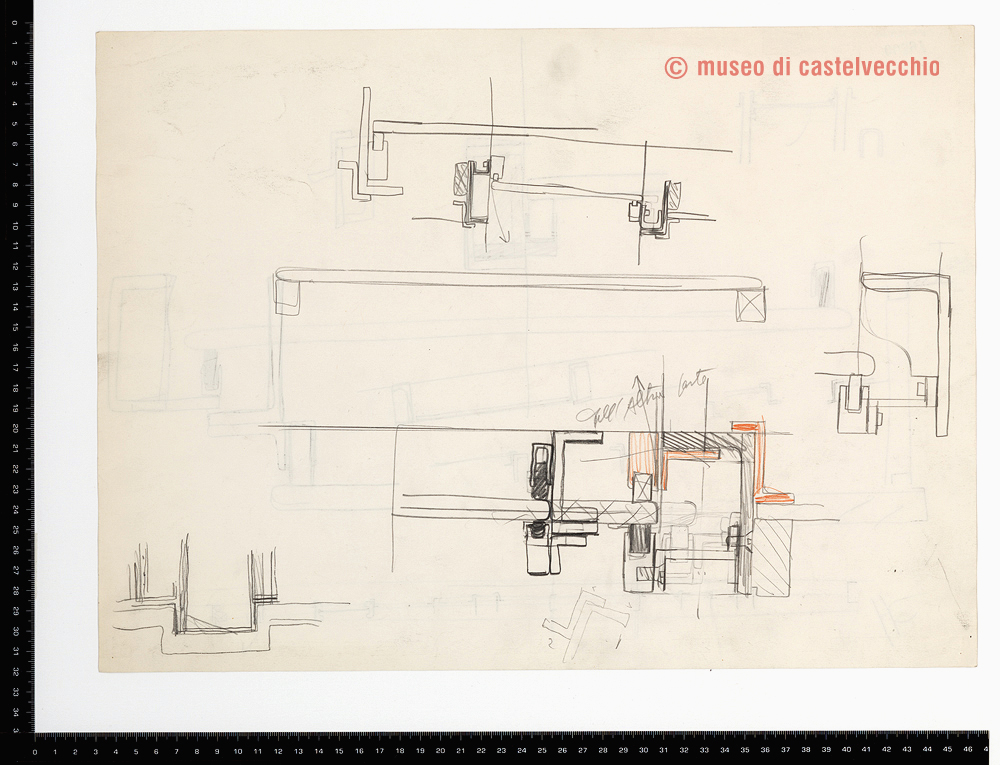 © museo di castelvecchio
0 1 2 3 4 5 6 7 8 9 10 11 12 13 14 15 16 17 18 19 20 21 22 23 24 25 26 27 28 29 30 31 32 33 34 3
dell'Altra parte
2 1
0 1 2 3 4 5 6 7 8 9 10 11 12 13 14 15 16 17 18 19 20 21 22 23 24 25 26 27 28 29 30 31 32 33 34 35 36 37 38 39 40 41 42 43 44 45 46 4